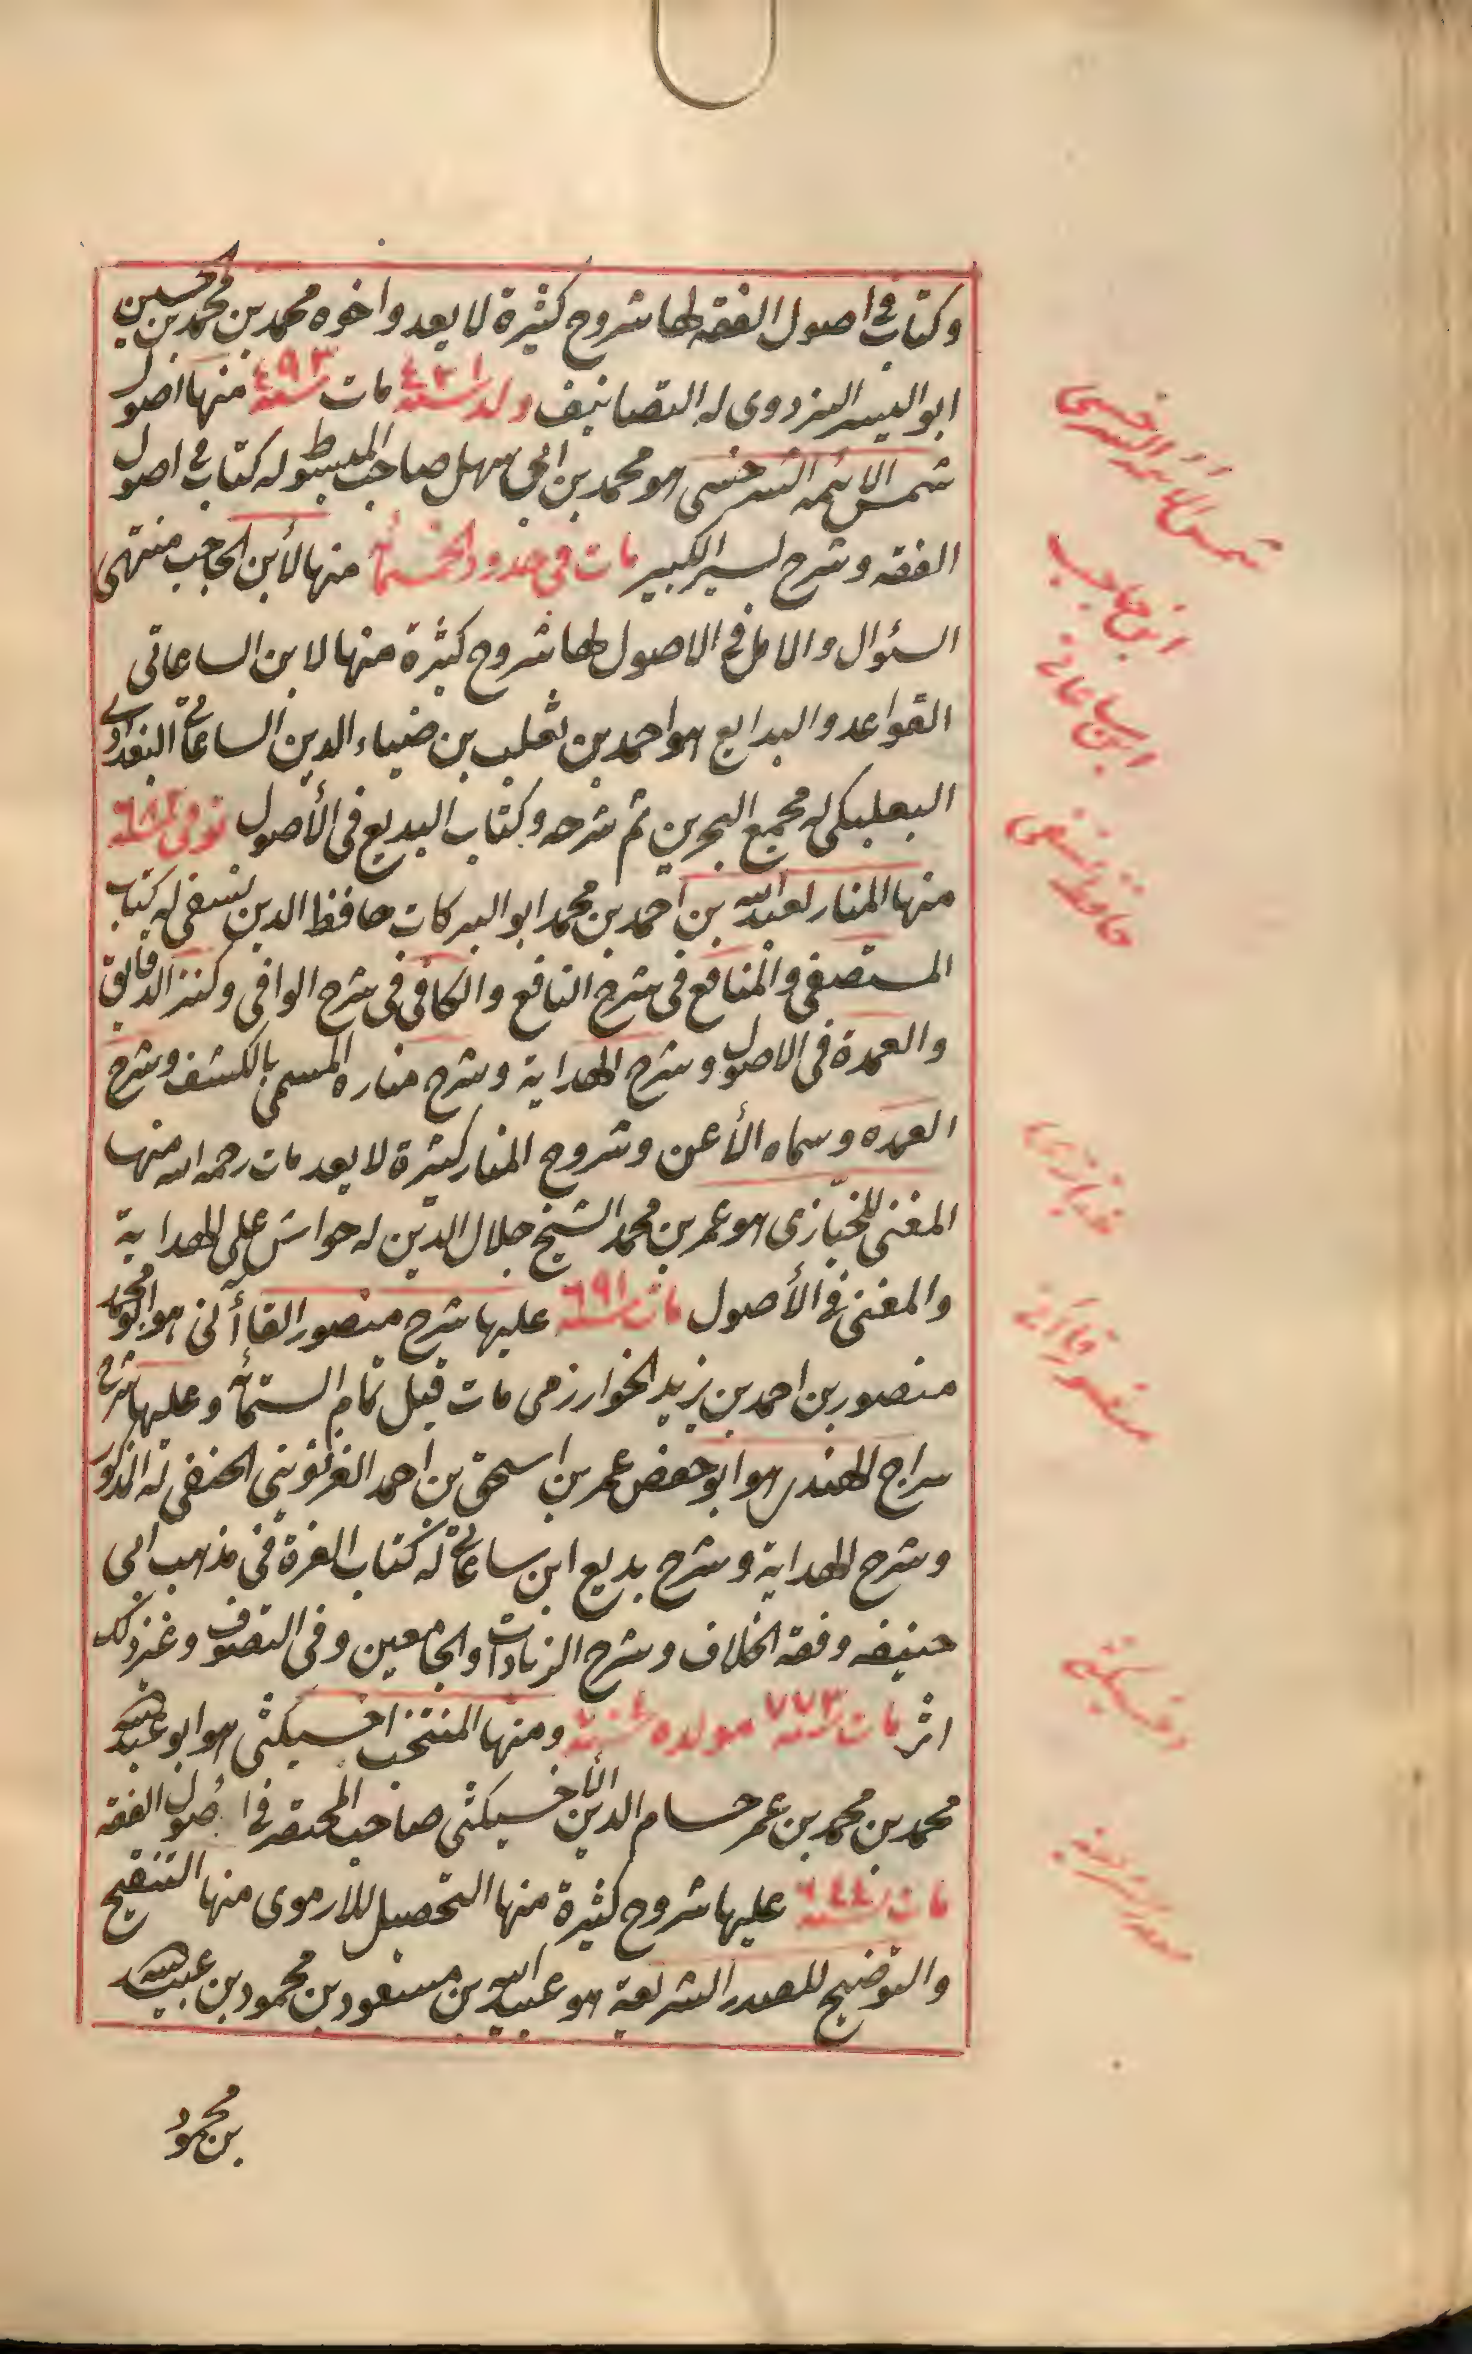 وكتاب في اصول الفقه لها شروح كثيرة لا يعد واخوه محمد بن محمد بن حسين
ابو اليسر البزدوى له التصانيف ولد سنة ٤٢١ مات سنة ٤٩٣ منها اصول
شمس الائمه السرخسى هو محمد بن ابى سهل صاحب المبسوط وله كتاب في اصول
الفقه وشرح لسير الكبير مات فى حدود الخمسمأة منها لأبن الحاجب منتهى
السئوال والامل في الاصول لها شروح كثيرة منها لابن الساعاتى
القواعد والبدايع هو احمد بن ثعلب بن ضياء الدين الساعاتي البغدادي
البعلبكى له مجمع البحرين ثم شرحه وكتاب البديع فى الأصول توفى سنة
منها المنار لعبد الله بن احمد بن محمد ابو البركات حافظ الدين نسفى له كتاب
المستصفى والمنافع فى شرح النافع والكافى فى شرح الوافى وكنز الدقايق
والعمدة فى الاصول وشرح الهداية وشرح مناره المسمى بالكشف وشرح
العمده وسماه الأعن وشروح المنار كثيرة لا يعد مات رحمه الله منها
المغنى للخبّازى هو عمر بن محمد الشيخ جلال الدين له حواش على الهداية
والمغنى في الأصول مات سنة ٦٩١ عليها شرح منصور القاأنى هو ابو محمد
منصور بن احمد بن زيد الخوارزمى مات قبل تمام الستمأة وعليها شرح
سراج الهندى هو ابو حفص عمر بن اسحق بن احمد الغزنوينى الحنفى له المذكور
وشرح الهداية وشرح بديع ابن ساعاتي له كتاب الغرة فى مذهب ابى
حنيفه وفقه الخلاف وشرح الزيادات والجامعين وفى التصوف وغير ذلك
اثر مات سنة ٧٧٣ مولده سنة ومنها المنتخب اخسيكثى هو ابو عبد الله
محمد بن محمد بن عمر حسام الدين الأخسيكثى صاحب المختصر في اصول الفقه
مات سنة ٦٤٤ عليها شروح كثيرة منها التحصيل للارموى منها التنقيح
والتوضيح للصدر الشريعة هو عبيد الله بن مسعود بن محمود بن عبيد الله
بن محمود
شمس الائمه السرخسى
ابن حاجب
ابن ساعاتى
حافظ نسفى
خبازى
منصور قاآنى
اخسيكثى
صدر الشريعه